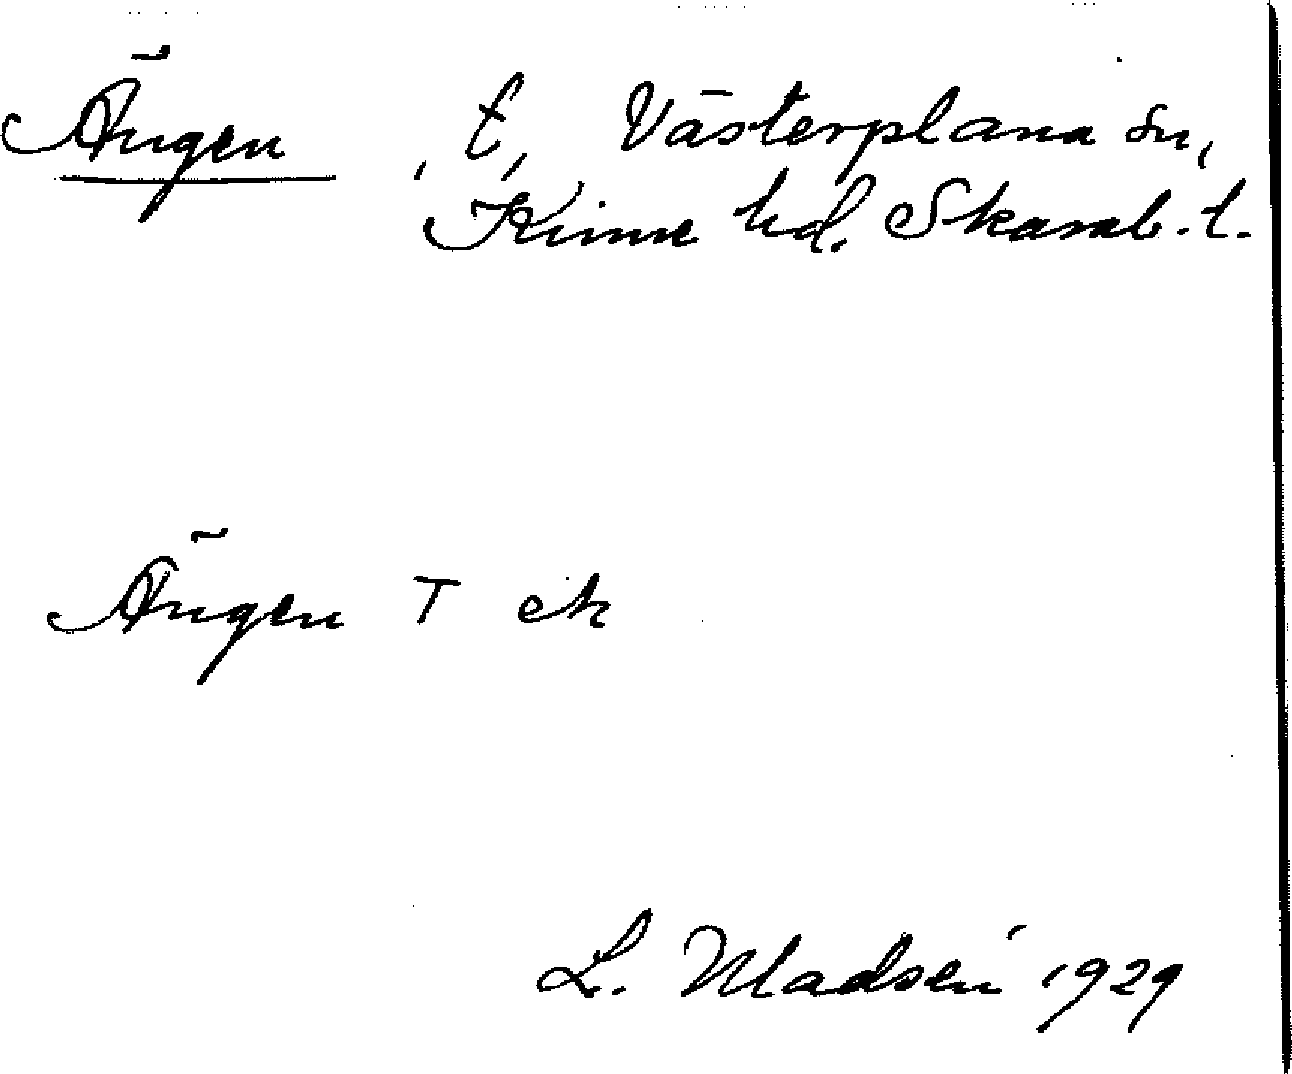 Ängen, t, Västerplana sn,
Kinne hd. Skarab. l.
Ängen T ek
L. Madsén 1929